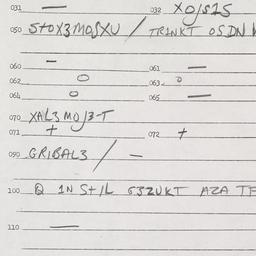 031 — 032 XO/S1S
050 STOX3MOSXU / TRINKT OSDN
060 — 061 —
062 O 063 O
064 O 065 —
070 XAL3MO/3-T
071 + 072 +
090 GRIBAL3 / —
100 Q 1N ST/L G3ZUKT AZA TF
110 —